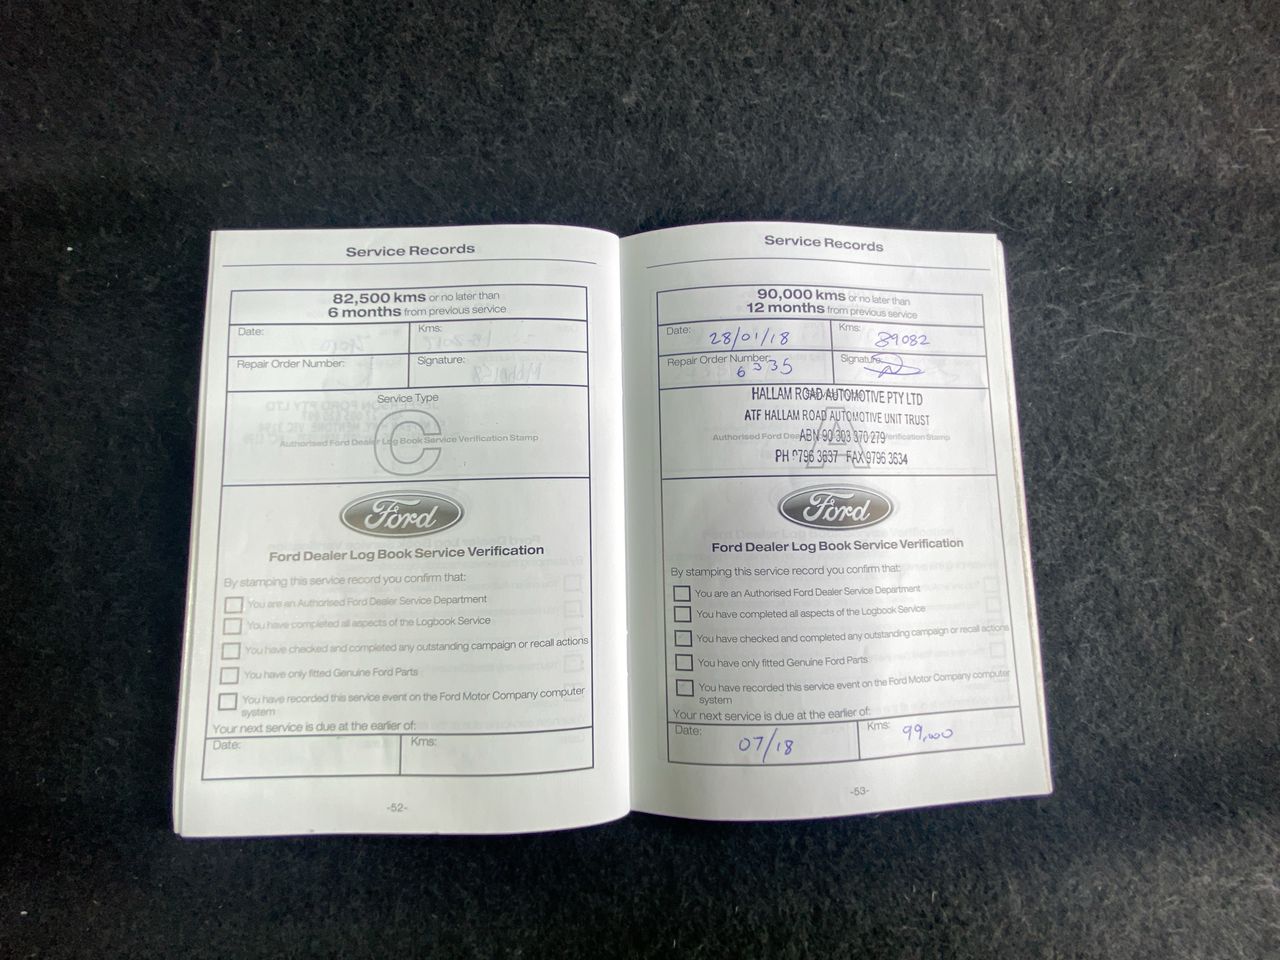 Service Records
82,500 kms or no later than
6 months from previous service
Date:
Kms:
Repair Order Number:
Signature:
Service Type
C
Authorised Ford Dealer Log Book Service Verification Stamp
Ford
Ford Dealer Log Book Service Verification
By stamping this service record you confirm that:
You are an Authorised Ford Dealer Service Department
You have completed all aspects of the Logbook Service
You have checked and completed any outstanding campaign or recall actions
You have only fitted Genuine Ford Parts
You have recorded this service event on the Ford Motor Company computer
system
Your next service is due at the earlier of:
Date:
Kms:
-52-
Service Records
90,000 kms or no later than
12 months from previous service
Date: 28/01/18
Kms: 89082
Repair Order Number: 6335
Signature:
HALLAM ROAD AUTOMOTIVE PTY LTD
ATF HALLAM ROAD AUTOMOTIVE UNIT TRUST
Authorised Ford Verification Stamp
ABN 90 303 370 279
A
PH 9796 3637 FAX 9796 3634
Ford
Ford Dealer Log Book Service Verification
By stamping this service record you confirm that:
You are an Authorised Ford Dealer Service Department
You have completed all aspects of the Logbook Service
You have checked and completed any outstanding campaign or recall actions
You have only fitted Genuine Ford Parts
You have recorded this service event on the Ford Motor Company computer
system
Your next service is due at the earlier of:
Date: 07/18
Kms: 99,000
-53-